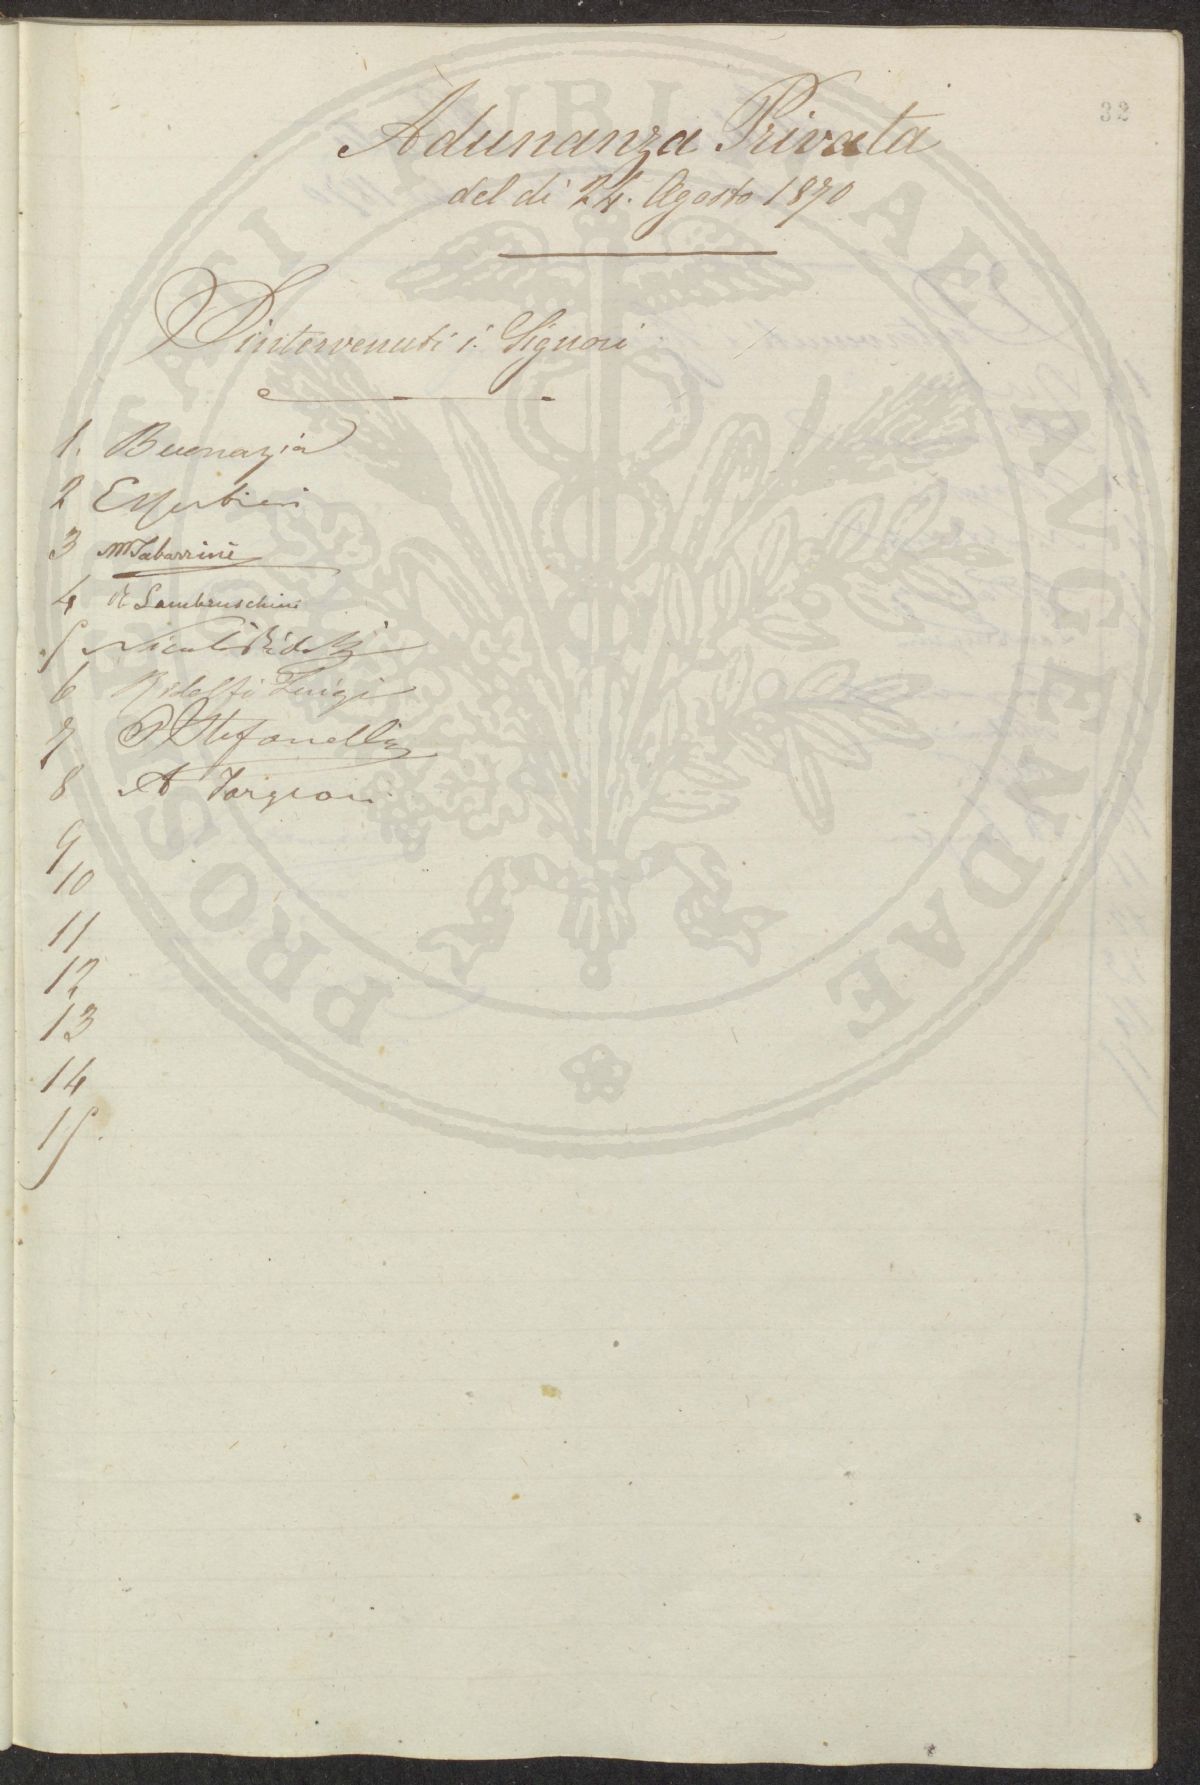 32
Adunanza Privata
del dì 24. Agosto 1870
intervenuti i Signori
1. Buonazia
2
3 M Tabarrini
4 R Lambruschini
5
6 Ridolfi Luigi
7 P Stefanelli
8 A Targioni
9
10
11
12
13
14
15.
PROSPERITATI PUBLICAE AVGENDAE